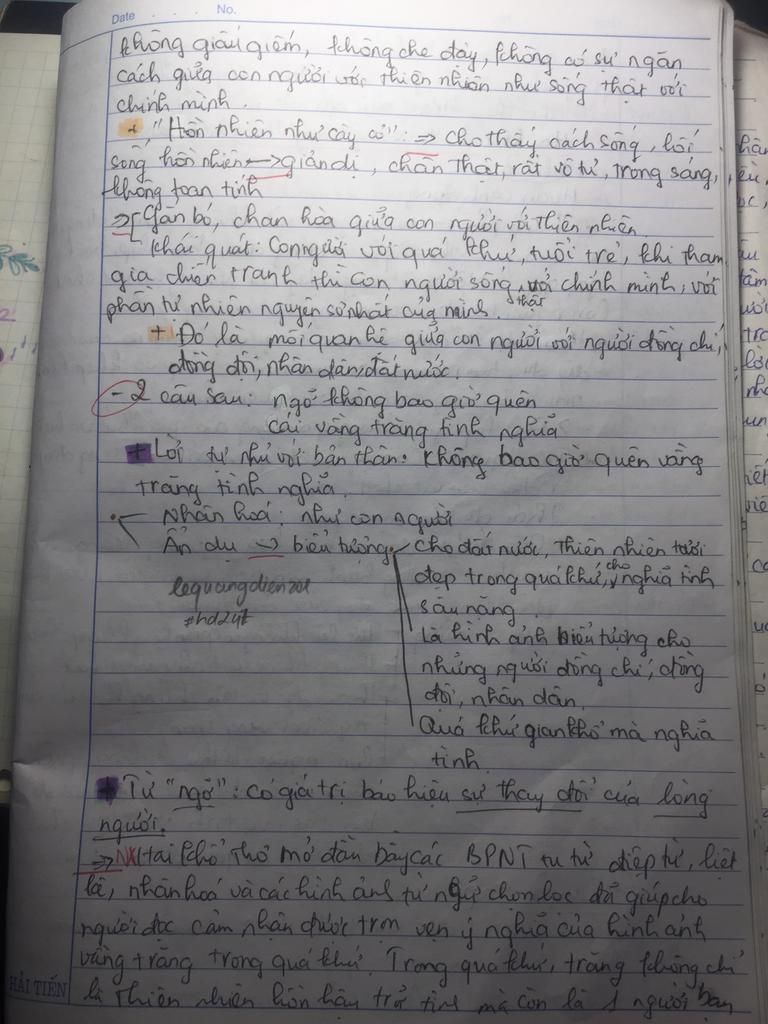 Date No.
không giấu giếm, không che đậy, không có sự ngăn
cách giữa con người với thiên nhiên như sống thật với
chính mình.
+ "Hồn nhiên như cây cỏ": => cho thấy cách sống, lối
sống hồn nhiên <-> giản dị, chân thật, rất vô tư, trong sáng,
không toan tính
=> Gắn bó, chan hòa giữa con người với thiên nhiên.
Khái quát: Con người với quá khứ, tuổi trẻ, khi tham
gia chiến tranh thì con người sống thật với chính mình, với
phần tự nhiên nguyên sơ nhất của mình.
+ Đó là mối quan hệ giữa con người với người đồng chí,
đồng đội, nhân dân, đất nước.
- 2 câu sau: ngỡ không bao giờ quên
cái vầng trăng tình nghĩa
+ Lời tự nhủ với bản thân: không bao giờ quên vầng
trăng tình nghĩa.
- Nhân hoá: như con người
Ẩn dụ -> biểu tượng
cho đất nước, thiên nhiên tươi
đẹp trong quá khứ, cho nghĩa tình
sâu nặng.
Là hình ảnh biểu tượng cho
những người đồng chí, đồng
đội, nhân dân.
Quá khứ gian khổ mà nghĩa
tình.
lequangdien201
#hd247
+ Từ "ngỡ": có giá trị báo hiệu sự thay đổi của lòng
người.
=> NX: hai khổ thơ mở đầu bằng các BPNT tu từ điệp từ, liệt
kê, nhân hoá và các hình ảnh từ ngữ chọn lọc đã giúp cho
người đọc cảm nhận được trọn vẹn ý nghĩa của hình ảnh
vầng trăng trong quá khứ. Trong quá khứ, trăng không chỉ
là thiên nhiên hồn hậu trữ tình mà còn là 1 người bạn
HẢI TIẾN